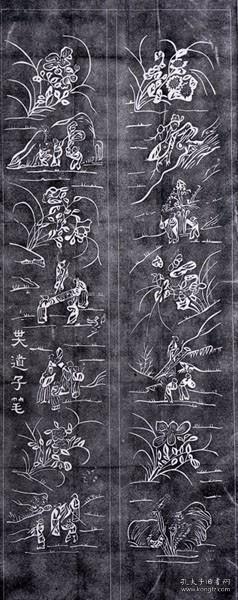 吴道子笔
孔夫子旧书网
www.kongfz.com